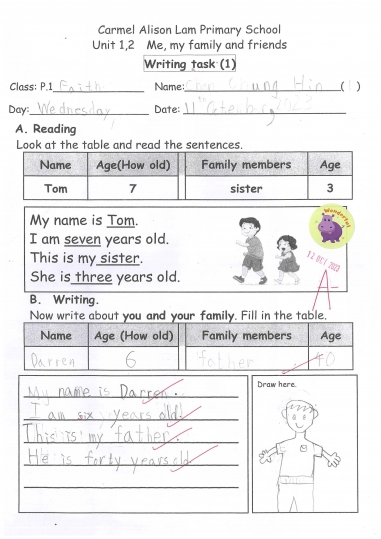 Carmel Alison Lam Primary School
Unit 1,2 Me, my family and friends
Writing task (1)
Class: P.1 Faith Name: Chan Chung Hin ( )
Day: Wednesday Date: 11th 2023
A. Reading
Look at the table and read the sentences.
Name Age(How old) Family members Age
Tom 7 sister 3
My name is Tom.
I am seven years old.
This is my sister.
She is three years old.
Wonderful
12 OCT 2023
A
B. Writing.
Now write about you and your family. Fill in the table.
Name Age (How old) Family members Age
Darren 6 father 40
My name is Darren.
I am six years old.
This is my father.
He is forty years old
Draw here.